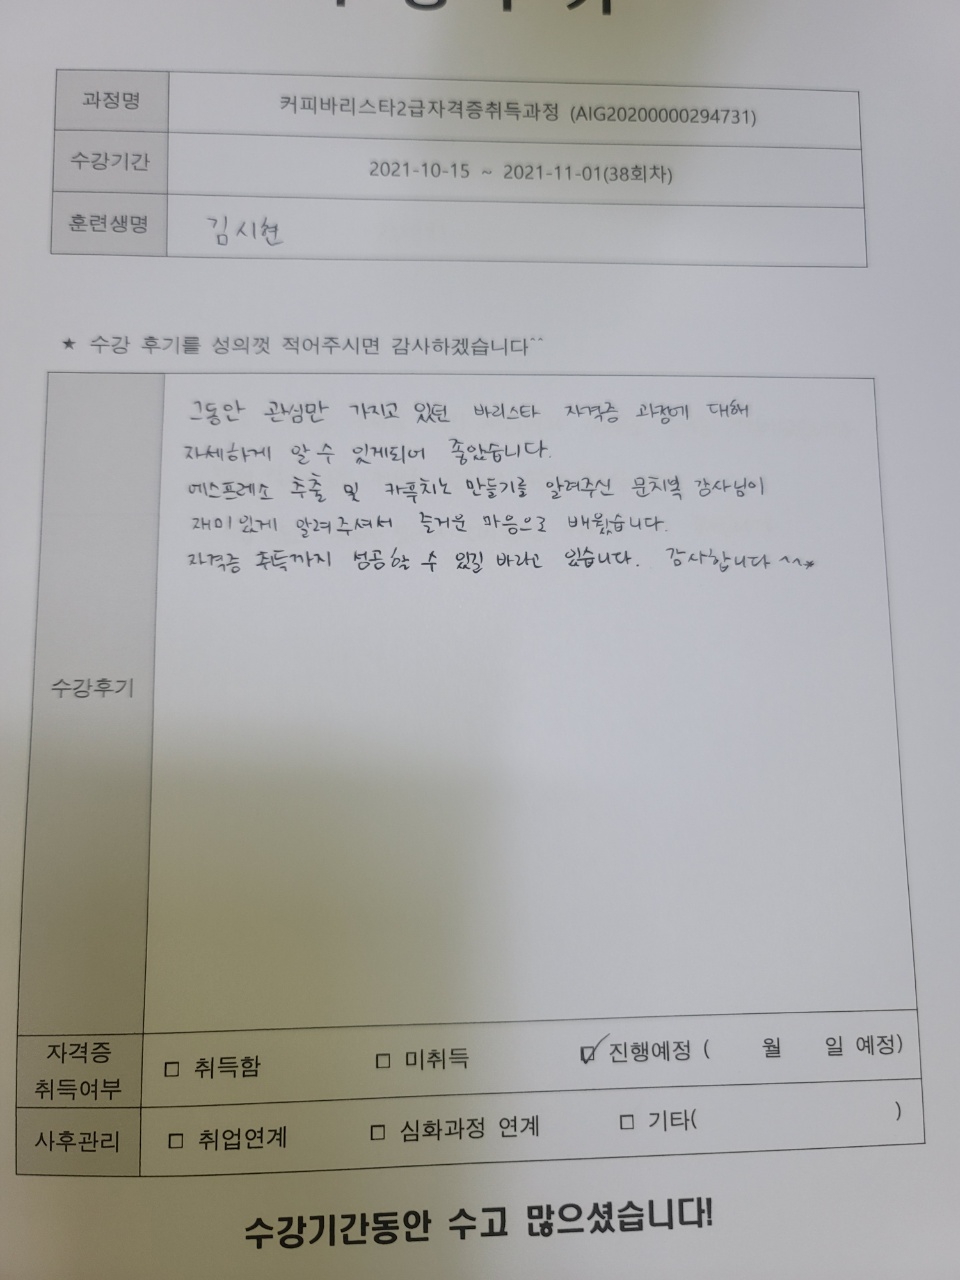 과정명 커피바리스타2급자격증취득과정 (AIG20200000294731)
수강기간 2021-10-15 ~ 2021-11-01(38회차)
훈련생명 김시현
★ 수강 후기를 성의껏 적어주시면 감사하겠습니다^^
그동안 관심만 가지고 있던 바리스타 자격증 과정에 대해
자세하게 알 수 있게되어 좋았습니다.
에스프레소 추출 및 카푸치노 만들기를 알려주신 강사님이
재미있게 알려주셔서 즐거운 마음으로 배웠습니다.
자격증 취득까지 성공할 수 있길 바라고 있습니다. 감사합니다 ^^*
수강후기
자격증 취득여부 □ 취득함 □ 미취득 ☑ 진행예정 ( 월 일 예정)
사후관리 □ 취업연계 □ 심화과정 연계 □ 기타( )
수강기간동안 수고 많으셨습니다!